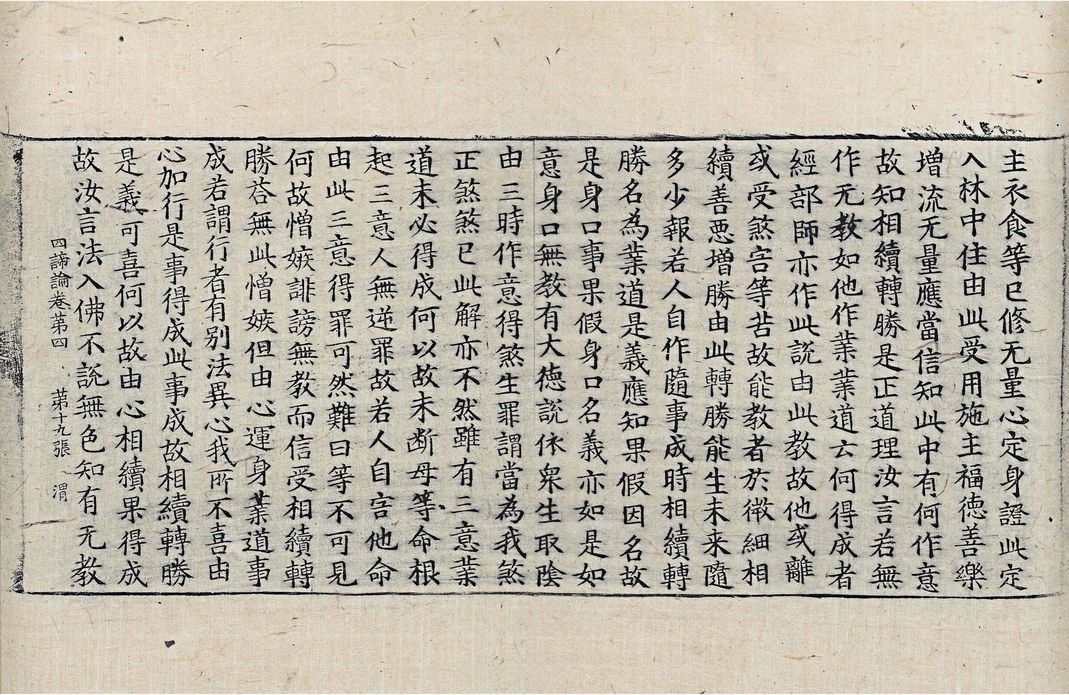 主衣食等已修无量心定身證此定
入林中住由此受用施主福德善樂
增流无量應當信知此中有何作意
故知相續轉勝是正道理汝言若無
作无教如他作業業道云何得成者
經部師亦作此說由此教故他或離
或受煞害等苦故能教者於微細相
續善惡增勝由此轉勝能生未来隨
多少報若人自作隨事成時相續轉
勝名為業道是義應知果假因名故
是身口事果假身口名義亦如是如
意身口無教有大德說依衆生取陰
由三時作意得煞生罪謂當為我煞
正煞煞已此解亦不然雖有三意業
道未必得成何以故未斷母等命根
起三意人無逆罪故若人自害他命
由此三意得罪可然難曰等不可見
何故憎嫉誹謗無教而信受相續轉
勝荅無此憎嫉但由心運身業道事
成若謂行者有别法異心我所不喜由
心加行是事得成此事成故相續轉勝
是義可喜何以故由心相續果得成
故汝言法入佛不說無色知有无教
四諦論卷第四 第十九張 渭